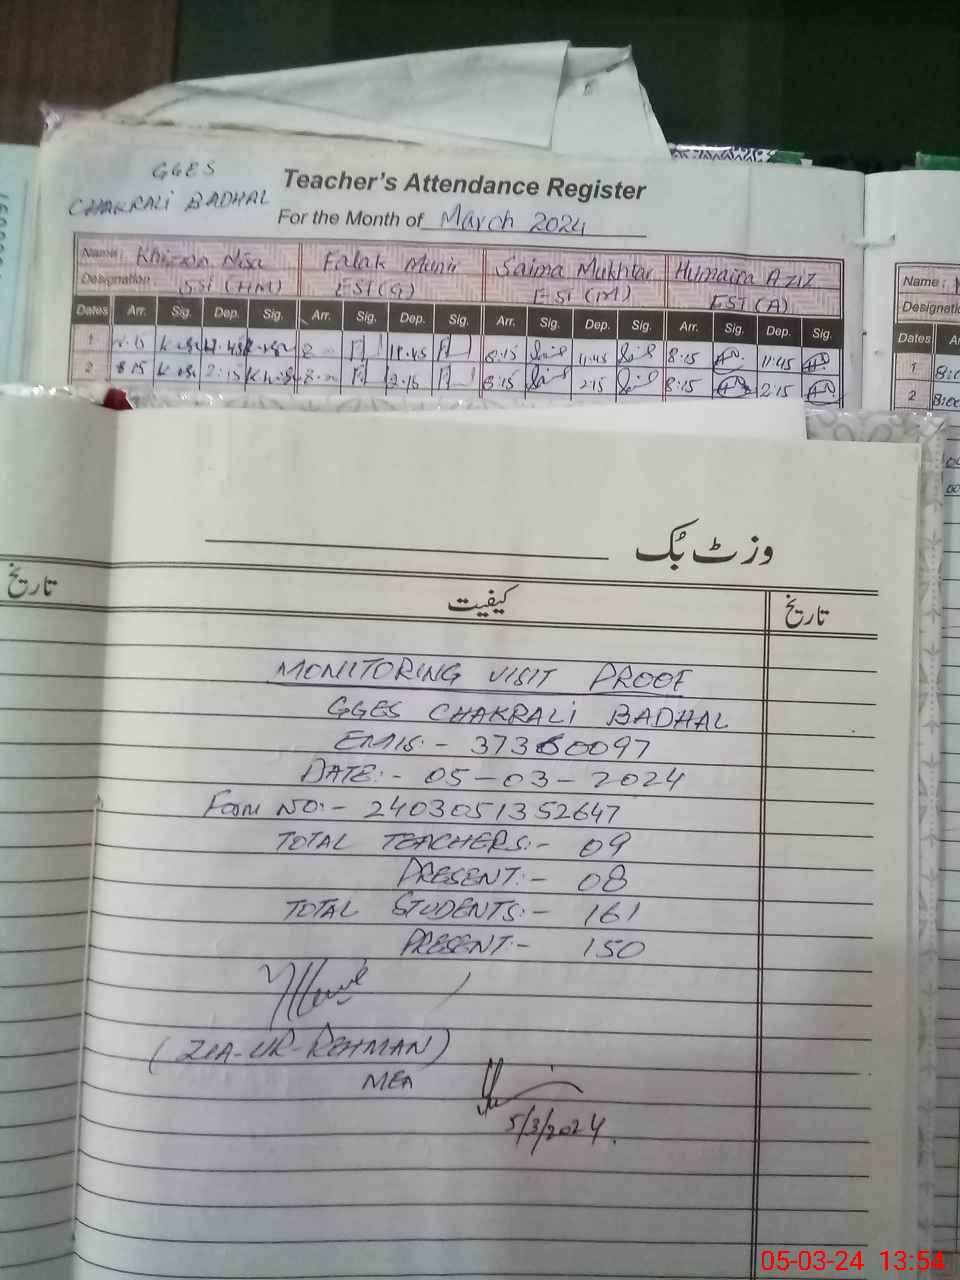 GGES
CHAKRALI BADHAL
Teacher's Attendance Register
For the Month of March 2024
Name: Khizran Nisa Falak Munir Saima Mukhtar Humaira Aziz
Designation SST (HM) EST (G) EST (M) EST (A)
Dates Arr. Sig. Dep. Sig. Arr. Sig. Dep. Sig. Arr. Sig. Dep. Sig. Arr. Sig. Dep. Sig.
1 8:15 11:45 8:15 11:45 8:15 11:45
2 8:15 2:15 2:15 8:15 2:15 8:15 2:15
Name:
Designation
Dates
1
2 8:00
وزٹ بُک
تاریخ
کیفیت
تاریخ
MONITORING VISIT PROOF
GGES CHAKRALI BADHAL
EMIS:- 37360097
DATE:- 05-03-2024
Form NO:- 2403051352647
TOTAL TEACHERS:- 09
PRESENT:- 08
TOTAL STUDENTS:- 161
PRESENT:- 150
(ZIA-UR-REHMAN)
MEA
5/3/2024.
05-03-24 13:54